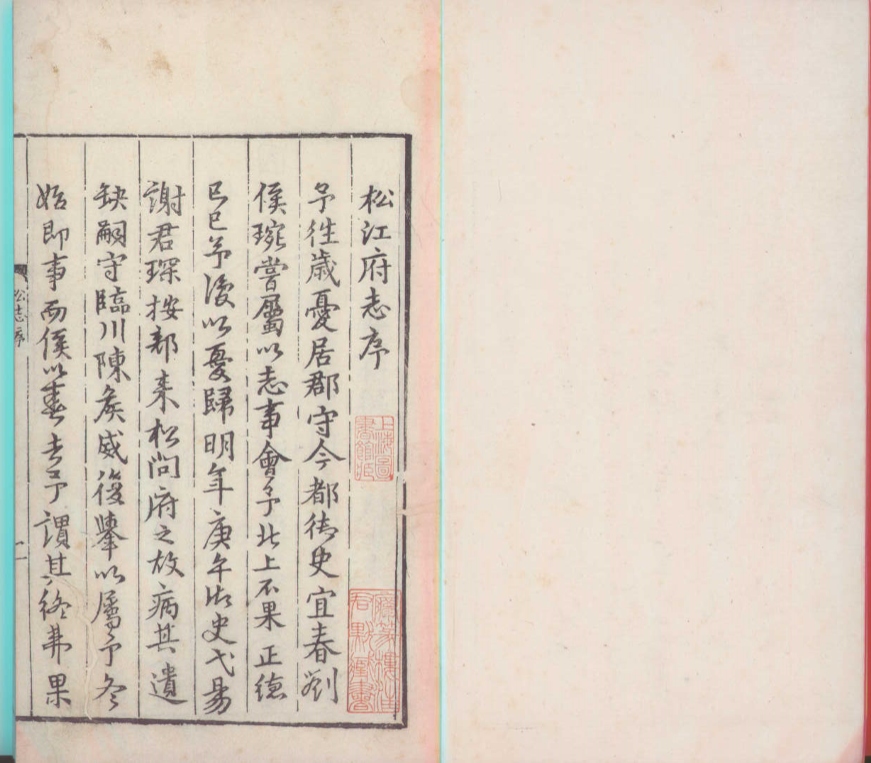 松江府志序
予徃歲憂居郡守今都徳史宜春劉
侯琬嘗屬以志事會予北上不果正德
己巳予復以憂歸明年庚午御史弋昜
謝君琛按部来松問府之故病其遺
缺嗣守臨川陳矦威復舉以屬予冬
始即事而侯以喪去予謂其終弗果
松志序
一
上海圖書館藏